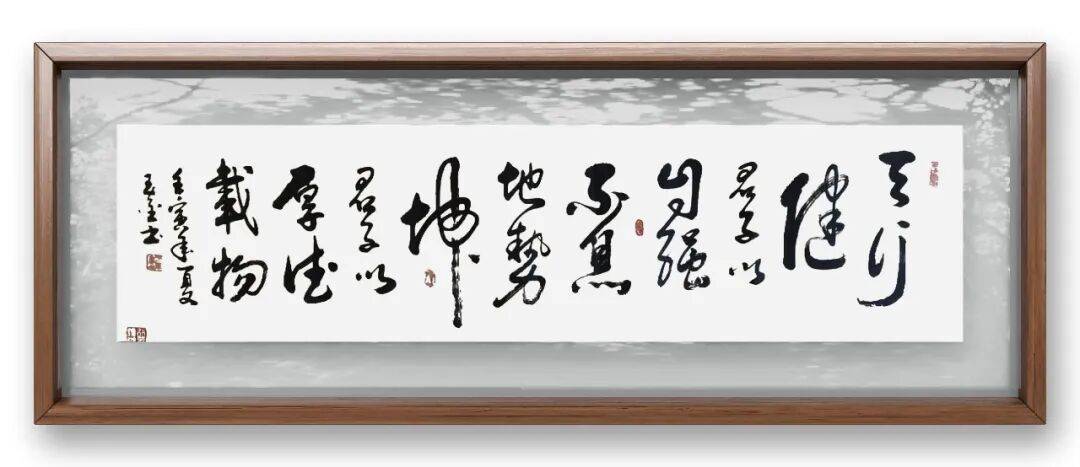 天行
健
君子以
自強
不息
地勢
坤
君子以
厚德
載物
壬寅年夏
书